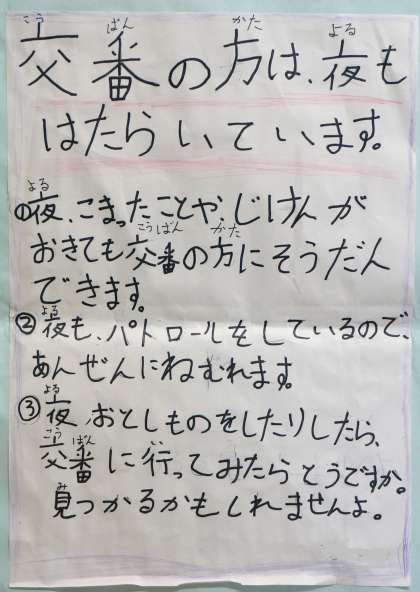 交番の方は、夜も
はたらいています。
①夜、こまったことや、じけんが
おきても交番の方にそうだん
できます。
②夜も、パトロールをしているので、
あんぜんにねむれます。
③夜、おとしものをしたりしたら、
交番に行ってみたらとうですか。
見つかるかもしれませんよ。